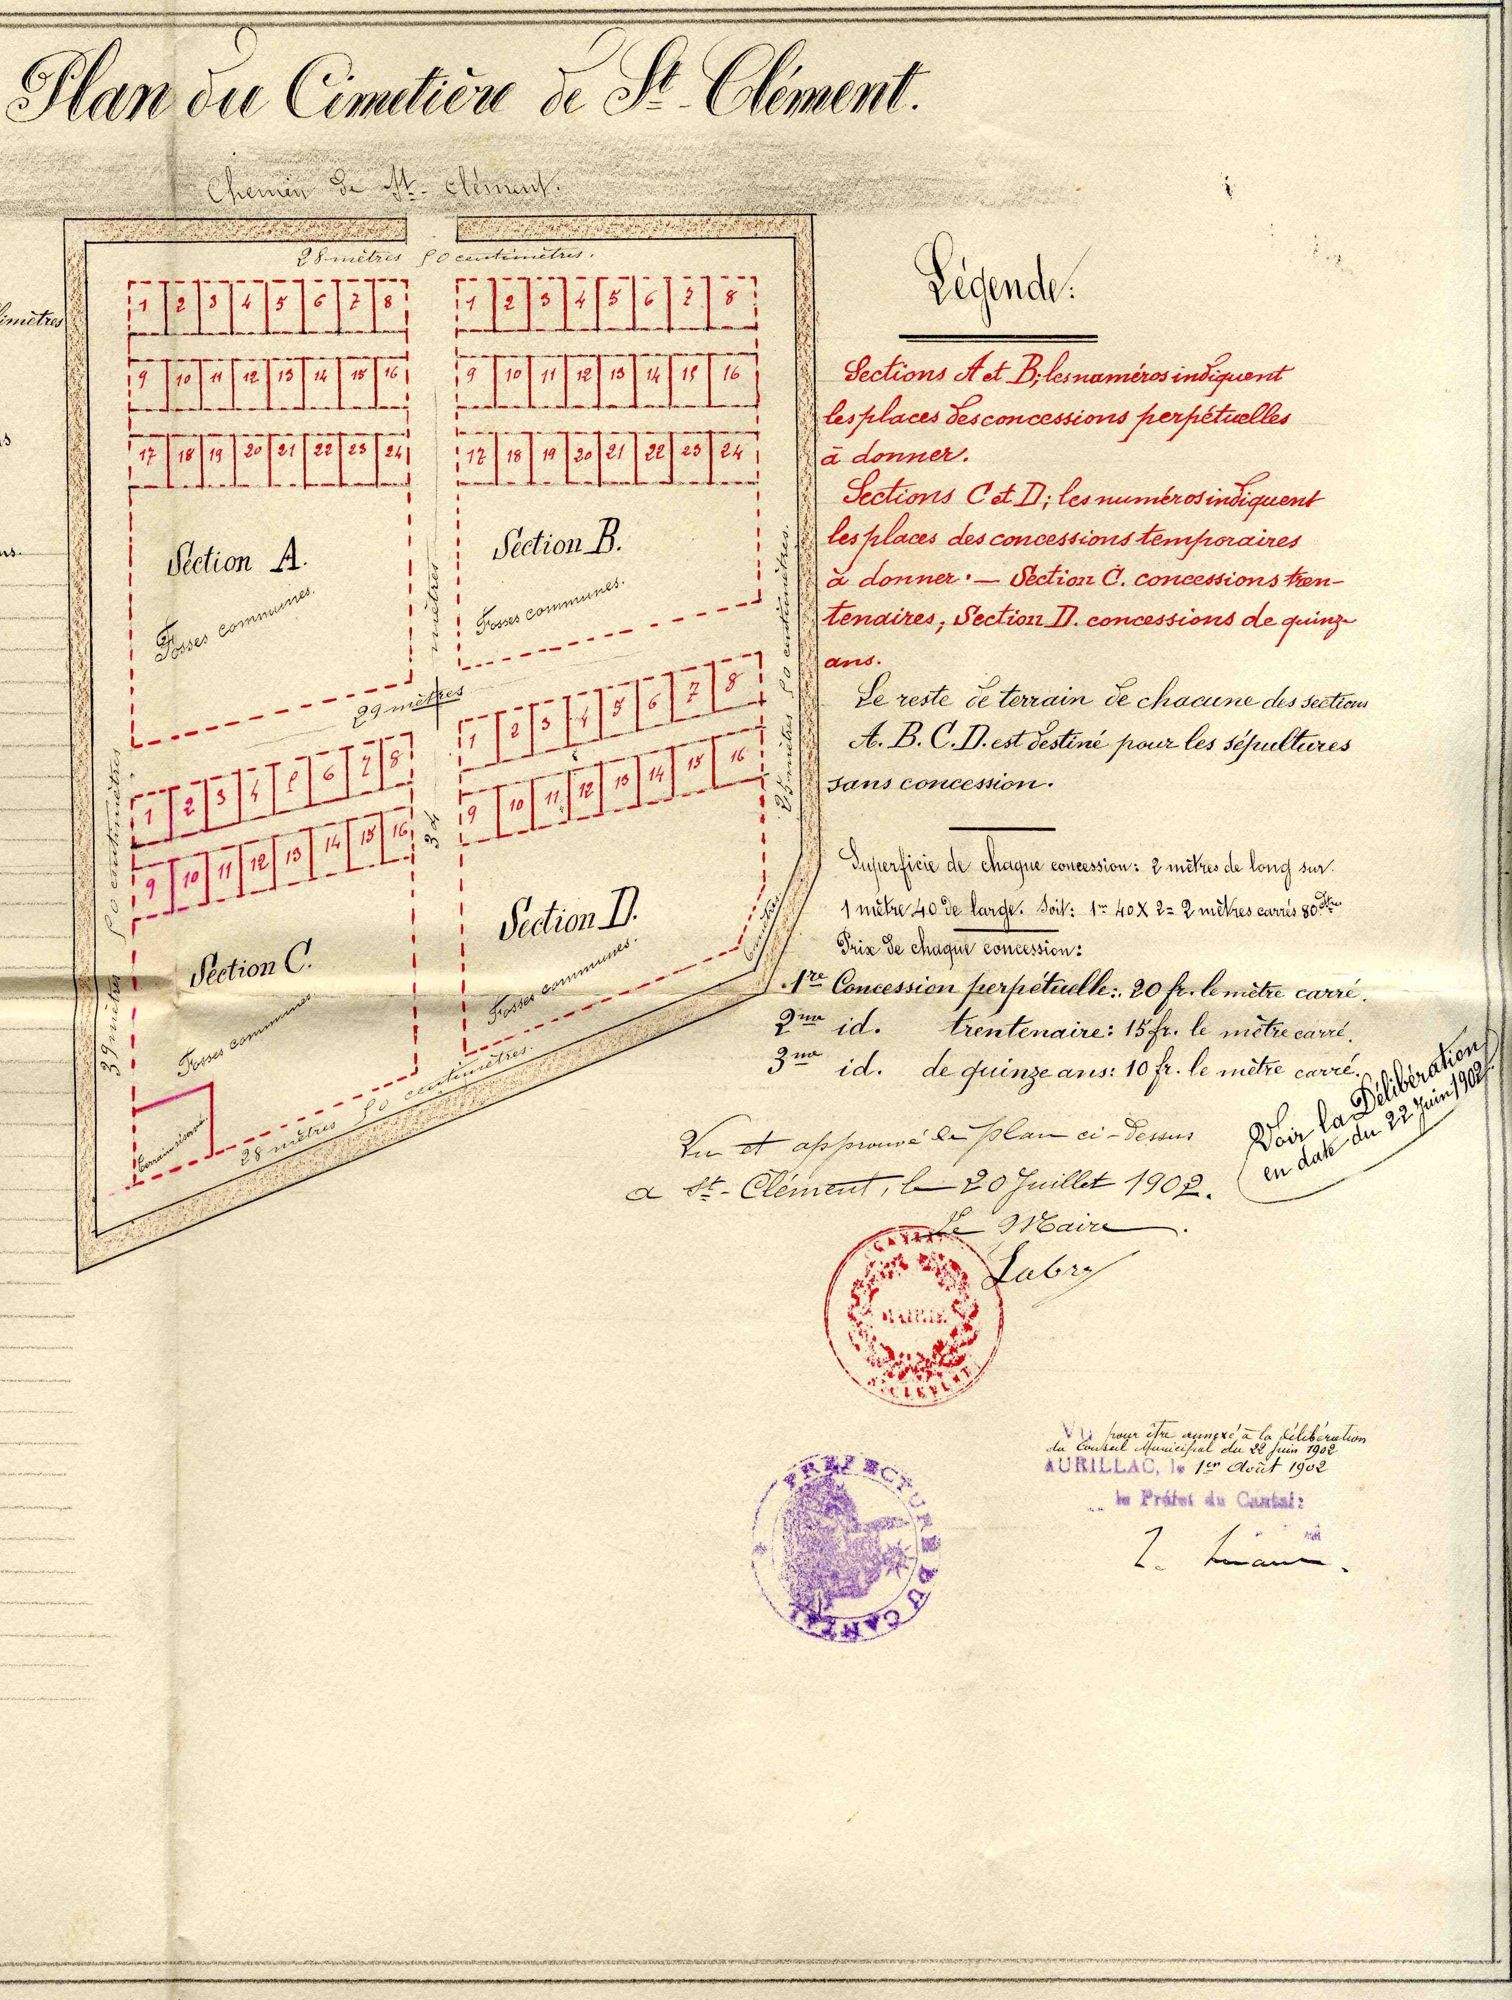 Plan du Cimetière de St-Clément.
Chemin de St-Clément.
28 mètres 50 centimètres.
1 2 3 4 5 6 7 8
9 10 11 12 13 14 15 16
17 18 19 20 21 22 23 24
Section A.
Fosses communes.
1 2 3 4 5 6 7 8
9 10 11 12 13 14 15 16
17 18 19 20 21 22 23 24
Section B.
Fosses communes.
29 mètres
34 mètres
25 mètres 50 centimètres.
1 2 3 4 5 6 7 8
9 10 11 12 13 14 15 16
Section C.
Fosses communes
Terrain réservé.
39 mètres 50 centimètres
1 2 3 4 5 6 7 8
9 10 11 12 13 14 15 16
Section D.
Fosses communes.
28 mètres 50 centimètres.
Légende:
Sections A et B; les numéros indiquent
les places des concessions perpétuelles
à donner.
Sections C et D; les numéros indiquent
les places des concessions temporaires
à donner. — Section C. concessions tren-
tenaires; Section D. concessions de quinze
ans.
Le reste de terrain de chacune des sections
A. B. C. D. est destiné pour les sépultures
sans concession.
Superficie de chaque concession: 2 mètres de long sur
1 mètre 40 de large. Soit: 1m 40 X 2 = 2 mètres carrés 80
Prix de chaque concession:
1re Concession perpétuelle: 20 fr. le mètre carré.
2me id. trentenaire: 15 fr. le mètre carré.
3me id. de quinze ans: 10 fr. le mètre carré.
Voir la Délibération
en date du 22 Juin 1902
Vu et approuvé le plan ci-dessus
a St-Clément, le 20 Juillet 1902.
Le Maire
Labry
MAIRIE
Vu pour être annexé à la délibération
du Conseil Municipal du 22 juin 1902
AURILLAC, le 1er Août 1902
le Préfet du Cantal:
PREFECTURE DU CANTAL